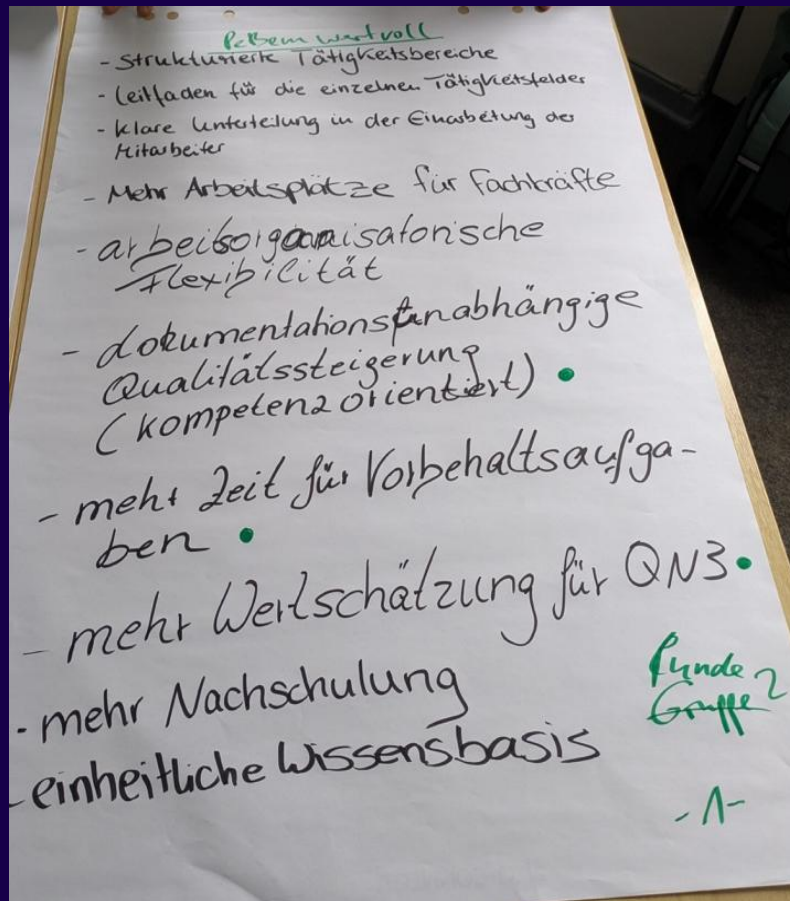 PeBem wertvoll
- Strukturierte Tätigkeitsbereiche
- Leitfaden für die einzelnen Tätigkeitsfelder
- klare Unterteilung in der Einarbeitung der
Mitarbeiter
- Mehr Arbeitsplätze für Fachkräfte
- arbeitsorganisatorische
Flexibilität
- dokumentationsunabhängige
Qualitätssteigerung
(kompetenzorientiert)
- mehr Zeit für Vorbehaltsaufga-
ben
- mehr Wertschätzung für QN3
- mehr Nachschulung
- einheitliche Wissensbasis
Runde 2
Gruppe
- 1 -